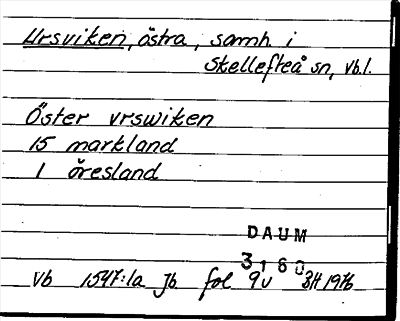 Ursviken, östra, samh. i
Skellefteå sn, vb.l.
Öster vrswiken
15 markland
1 öresland
DAUM
3160
Vb 1547:1a Jb fol 9v BH 1976